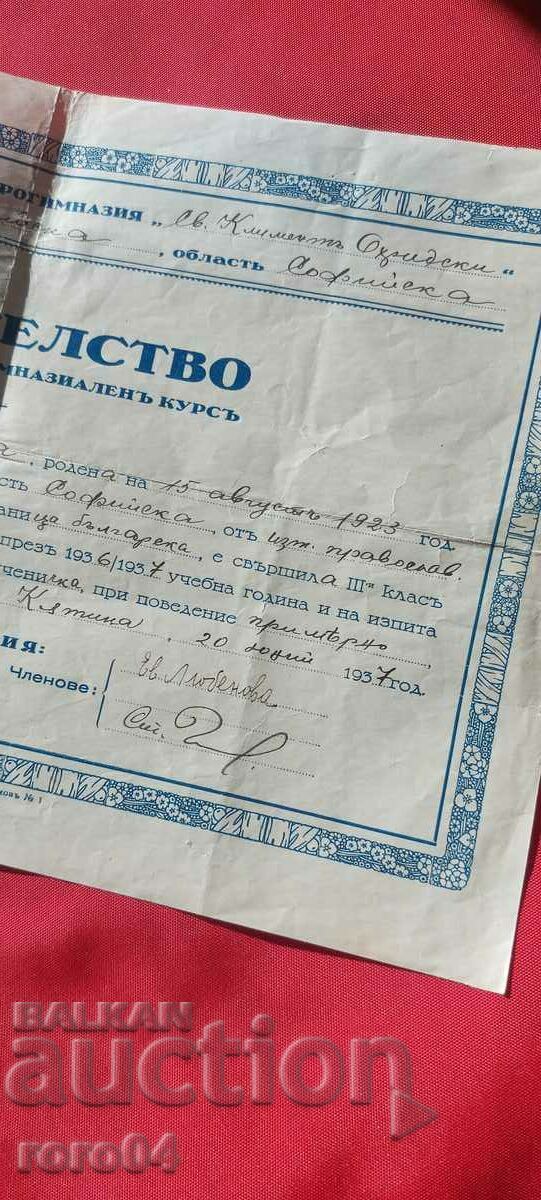 РОГИМНАЗИЯ „Св. Климентъ Охридски“
, область Софийска
ЕЛСТВО
МНАЗИАЛЕНЪ КУРСЪ
а, родена на 15 августъ 1923 год.
сть Софийска, отъ изт. православ.
аница българска, е свършила III-и класъ
презъ 1936/1937 учебна година и на изпита
ченичка, при поведение примѣрно,
Клятина, 20 юний 1937 год.
ИЯ:
Членове:
Ев. Любенова
Ст.
овъ № 1
BALKAN
auction
roro04